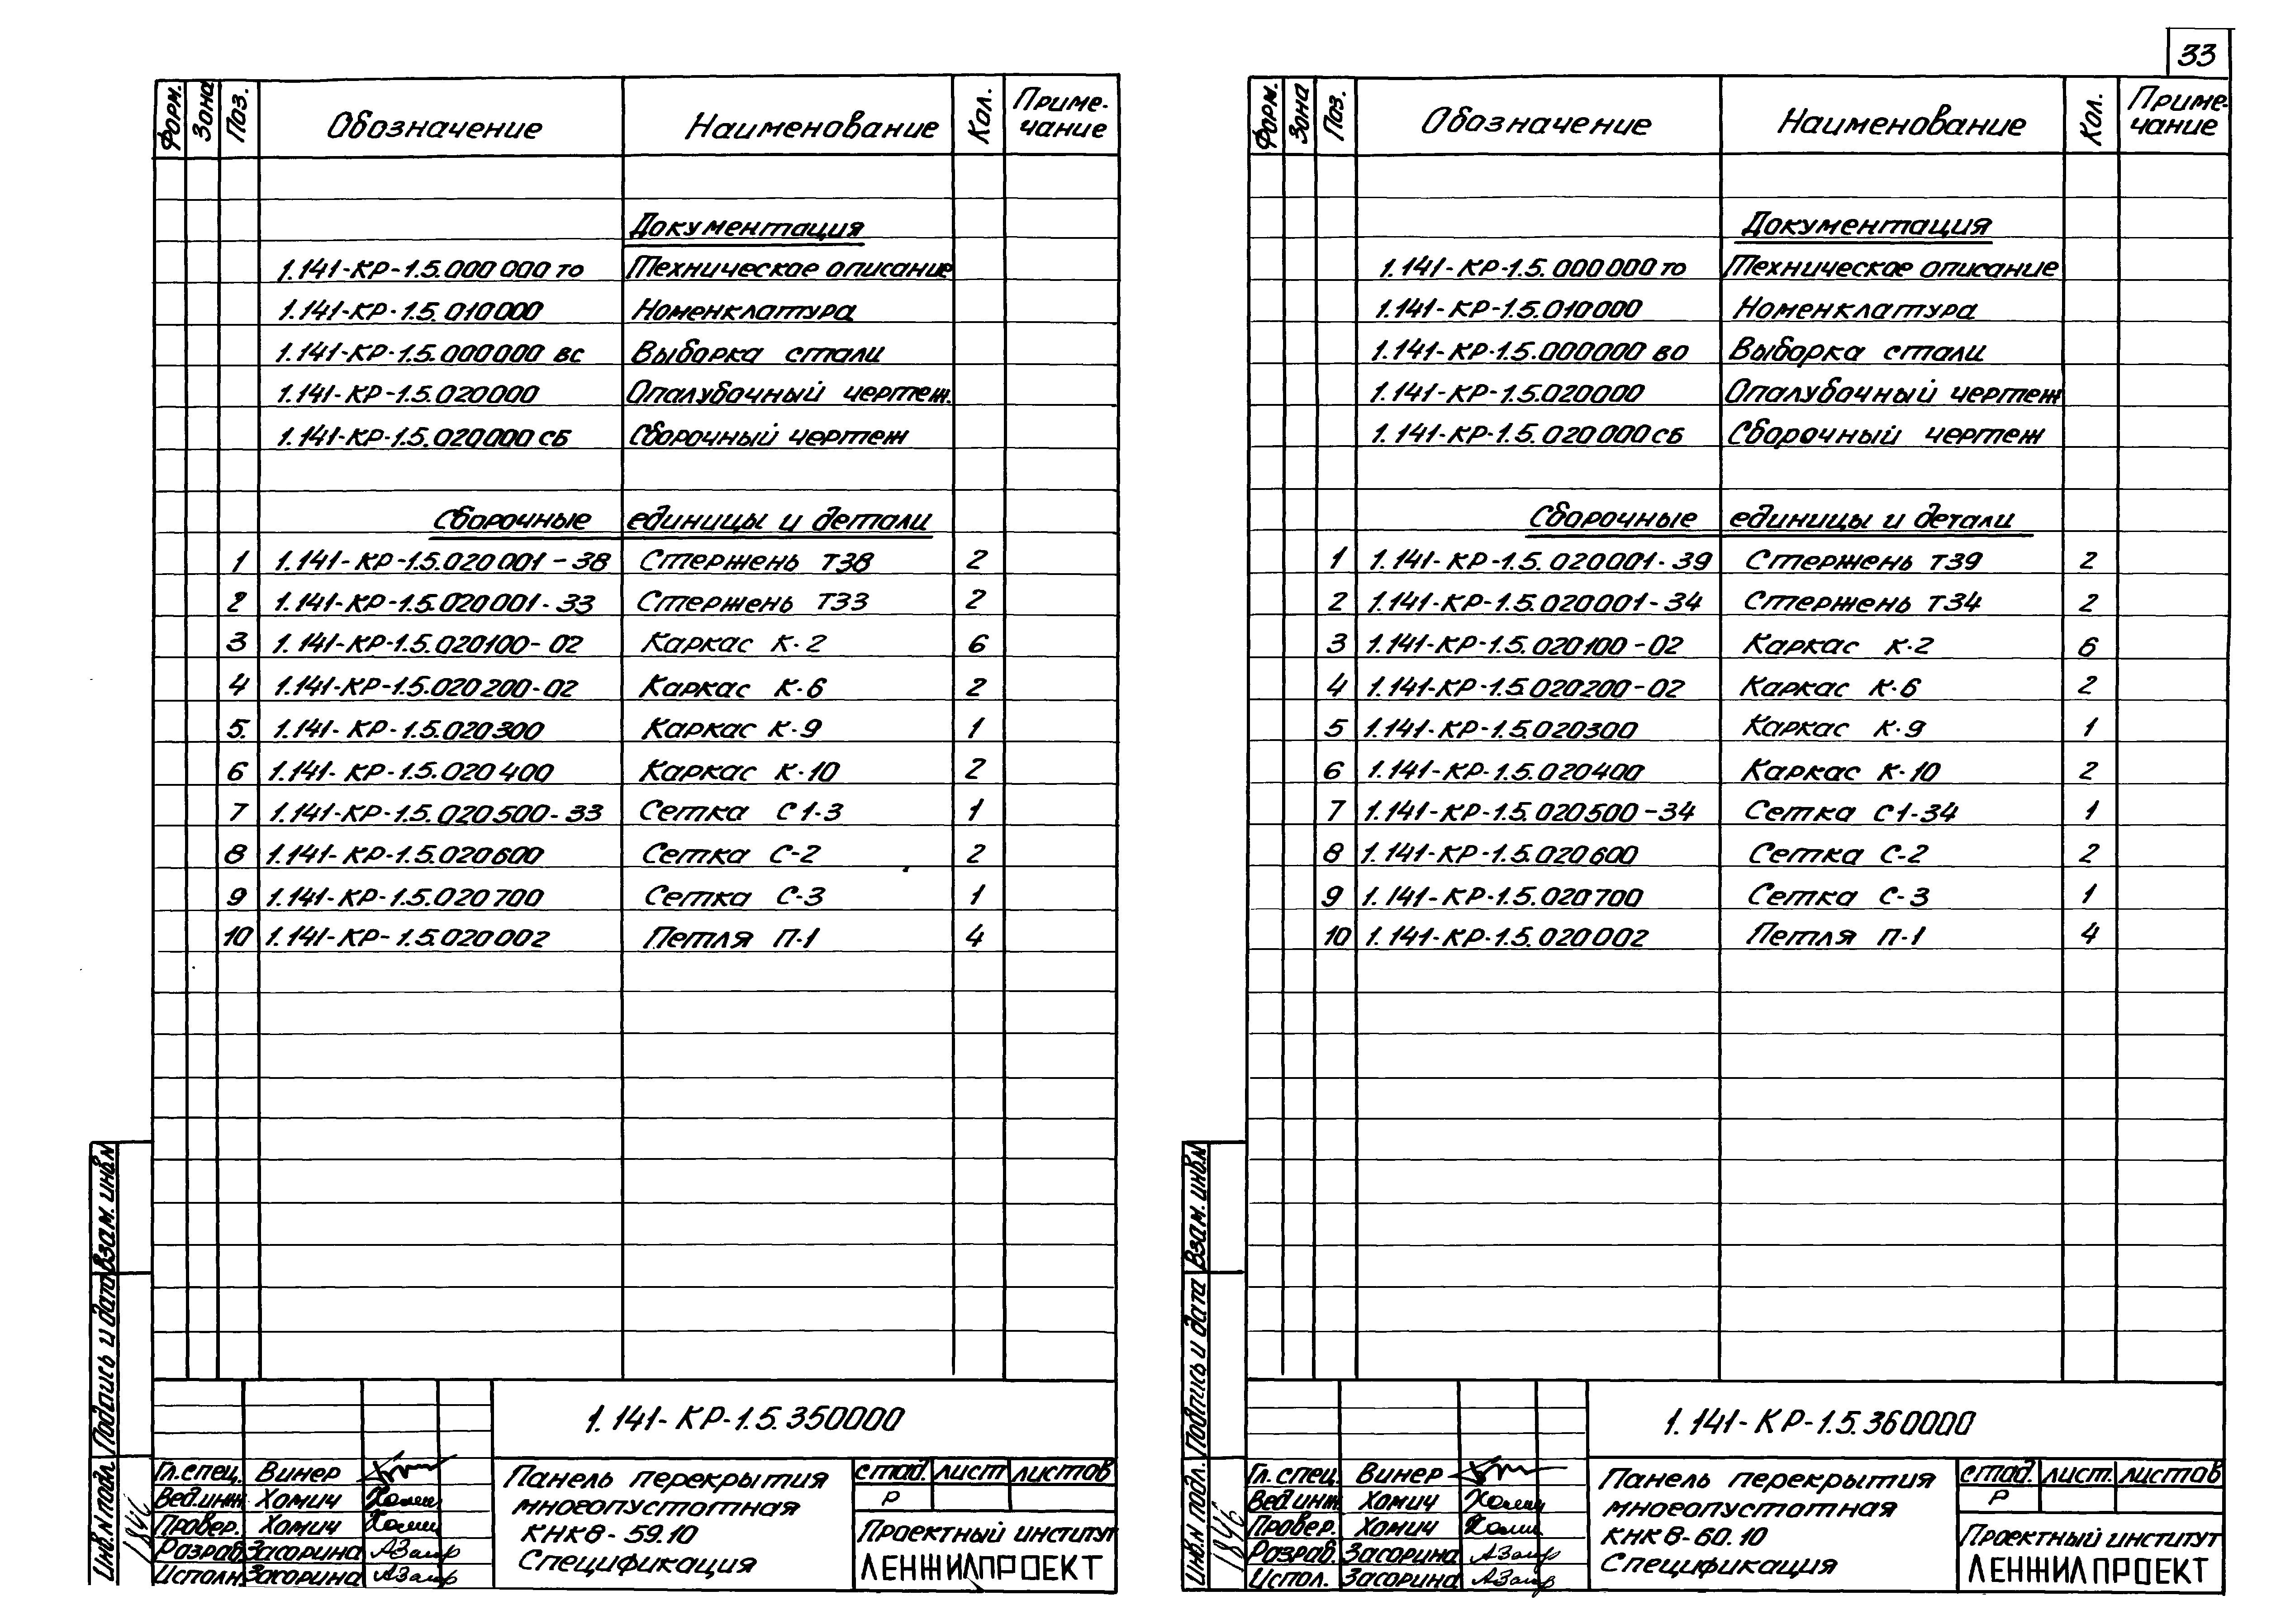 33
Форм. Зона Поз. Обозначение Наименование Кол. Приме-
чание
Документация
1.141-КР-1.5.000000 то Техническое описание
1.141-КР-1.5.010000 Номенклатура
1.141-КР-1.5.000000 вс Выборка стали
1.141-КР-1.5.020000 Опалубочный чертеж.
1.141-КР-1.5.020000 сб Сборочный чертеж
Сборочные единицы и детали
1 1.141-КР-1.5.020001-38 Стержень Т38 2
2 1.141-КР-1.5.020001-33 Стержень Т33 2
3 1.141-КР-1.5.020100-02 Каркас К-2 6
4 1.141-КР-1.5.020200-02 Каркас К-6 2
5 1.141-КР-1.5.020300 Каркас К-9 1
6 1.141-КР-1.5.020400 Каркас К-10 2
7 1.141-КР-1.5.020500-33 Сетка С1-3 1
8 1.141-КР-1.5.020600 Сетка С-2 2
9 1.141-КР-1.5.020700 Сетка С-3 1
10 1.141-КР-1.5.020002 Петля П-1 4
Взам. инв.N
Подпись и дата
Инв.N подл.
1846
1.141-КР-1.5.350000
Гл.спец. Винер
Вед.инж. Хомич
Провер. Хомич
Разраб. Засорина
Исполн. Засорина
Панель перекрытия
многопустотная
КНК8-59.10
Спецификация
стад. лист листов
Р
Проектный институт
ЛЕНЖИЛПРОЕКТ
Форм. Зона Поз. Обозначение Наименование Кол. Приме-
чание
Документация
1.141-КР-1.5.000000 то Техническое описание
1.141-КР-1.5.010000 Номенклатура
1.141-КР-1.5.000000 во Выборка стали
1.141-КР-1.5.020000 Опалубочный чертеж
1.141-КР-1.5.020000 сб Сборочный чертеж
Сборочные единицы и детали
1 1.141-КР-1.5.020001-39 Стержень Т39 2
2 1.141-КР-1.5.020001-34 Стержень Т34 2
3 1.141-КР-1.5.020100-02 Каркас К-2 6
4 1.141-КР-1.5.020200-02 Каркас К-6 2
5 1.141-КР-1.5.020300 Каркас К-9 1
6 1.141-КР-1.5.020400 Каркас К-10 2
7 1.141-КР-1.5.020500-34 Сетка С1-34 1
8 1.141-КР-1.5.020600 Сетка С-2 2
9 1.141-КР-1.5.020700 Сетка С-3 1
10 1.141-КР-1.5.020002 Петля П-1 4
Взам. инв.N
Подпись и дата
Инв.N подл.
1846
1.141-КР-1.5.360000
Гл. спец. Винер
Вед.инж. Хомич
Провер. Хомич
Разраб. Засорина
Испол. Засорина
Панель перекрытия
многопустотная
КНК8-60.10
Спецификация
стад. лист. листов
Р
Проектный институт
ЛЕНЖИЛПРОЕКТ